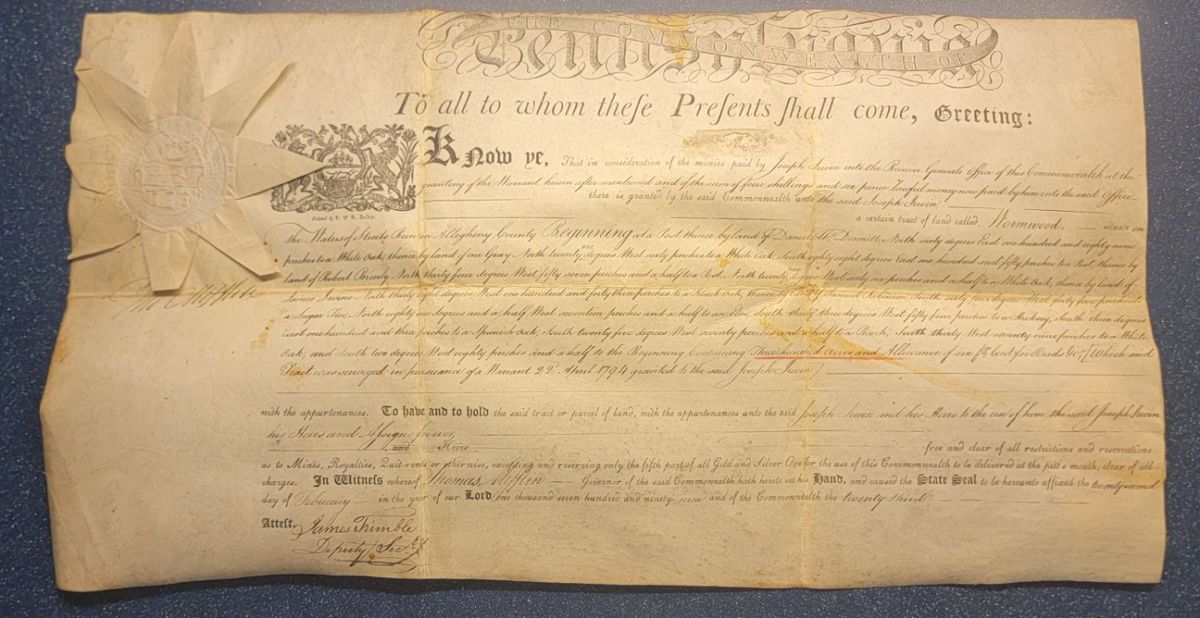 THE COMMONWEALTH OF
Pennsylvania
To all to whom theſe Preſents ſhall come, Greeting:
Know ye, That in consideration of the monies paid by Joseph Irwin into the Receiver Generals Office of this Commonwealth at the
granting of the Warrant herein after mentioned and of the sum of four shillings and six pence lawful money now paid by him into the said Office
there is granted by the said Commonwealth unto the said Joseph Irwin
a certain tract of land called Wormwood situate on
the Waters of Streets Run in Allegheny County Beginning at a Post thence by land of Daniel McDermitt North sixty degrees East one hundred and eighty nine
perches to a White Oak, thence by land of Gray North twenty one degrees West sixty perches to a White Oak South eighty eight degrees East one hundred and fifty perches to a Post, thence by
land of Robert North thirty four degrees West fifty seven perches and a half to a Post North twenty degrees West ninty six perches and a half to a White Oak, thence by land of
North thirty eight degrees West one hundred and forty three perches to a Black Oak, thence by land of Samuel Robinson South sixty four degrees West forty five perches to
a Sugar Tree, North eighty six degrees and a half West seventeen perches and a half to an Elm, South thirty three degrees West fifty four perches to a Hickory, South three degrees
East one hundred and three perches to a Spanish Oak, South twenty five degrees West seventy perches and a half to a Post, South thirty West seventy nine perches to a White
Oak, and South two degrees West eighty perches and a half to the Beginning Containing Three hundred Acres and Allowance of six P Cent for Roads &c, (Which said
Tract was surveyed in pursuance of a Warrant 22d April 1794 granted to the said Joseph Irwin)
with the appurtenances. To have and to hold the said tract or parcel of land, with the appurtenances unto the said Joseph Irwin and his Heirs to the use of him the said Joseph Irwin
his Heirs and Aſsigns forever
and Heirs free and clear of all restrictions and reservations
as to Mines, Royalties, Quit-rents or otherwise, excepting and reserving only the fifth part of all Gold and Silver Ore for the use of this Commonwealth to be delivered at the pitt's mouth, clear of all
charges. In Witness whereof Thomas Mifflin Governor of the said Commonwealth hath hereto set his Hand, and caused the State Seal to be hereunto affixed the twenty second
day of February in the year of our Lord one thousand seven hundred and ninety nine and of the Commonwealth the twenty third
Attest,
James Trimble
Deputy Secy
Printed by F. & R. Bailey.
Tho Mifflin